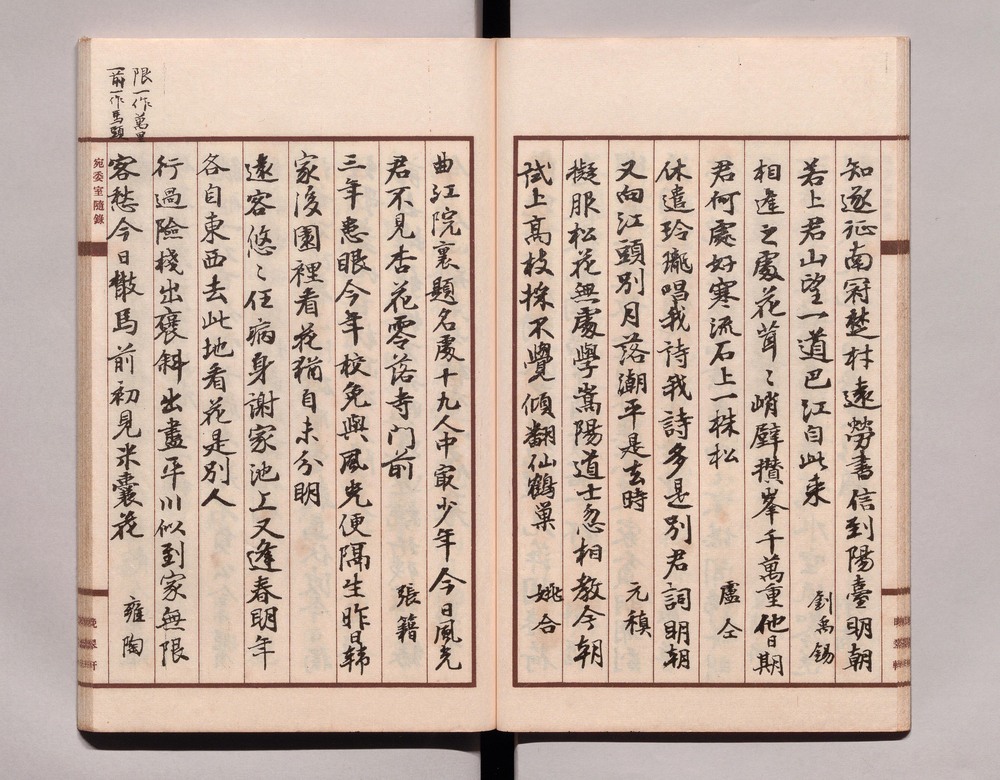 知逐征南冠楚材遠勞書信到陽臺明朝
若上君山望一道巴江自此来
劉禹錫
相逢之處花茸〻峭壁攢峯千萬重他日期
君何處好寒流石上一株松
盧仝
休遣玲瓏唱我詩我詩多是別君詞明朝
又向江頭別月落潮平是去時
元稹
擬服松花無處學嵩陽道士忽相教今朝
試上高枝採不覺傾翻仙鶴巢
姚合
曲江院裏題名處十九人中最少年今日風光
君不見杏花零落寺門前
張籍
三年患眼今年校免與風光便隔生昨日韓
家後園裡看花猶自未分明
遠客悠〻任病身謝家池上又逢春明年
各自東西去此地看花是別人
行過險棧出褒斜出盡平川似到家無限
客愁今日散馬前初見米囊花
雍陶
限一作萬里
前一作馬頭
宛委室隨錄
晚翠軒